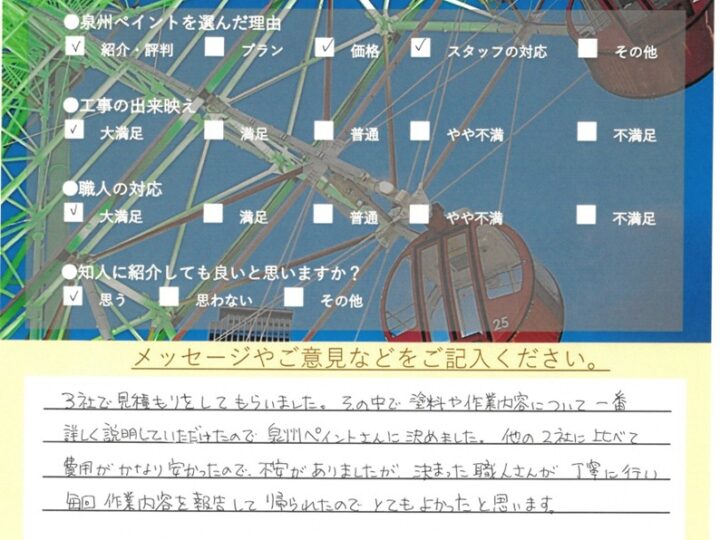 ●泉州ペイントを選んだ理由
✓ 紹介・評判 プラン ✓ 価格 ✓ スタッフの対応 その他
●工事の出来映え
✓ 大満足 満足 普通 やや不満 不満足
●職人の対応
✓ 大満足 満足 普通 やや不満 不満足
●知人に紹介しても良いと思いますか？
✓ 思う 思わない その他
25
メッセージやご意見などをご記入ください。
3社で見積もりをしてもらいました。その中で塗料や作業内容について一番
詳しく説明していただけたので泉州ペイントさんに決めました。他の2社に比べて
費用がかなり安かったので、不安がありましたが、決まった職人さんが丁寧に行い
毎回作業内容を報告して帰られたのでとてもよかったと思います。